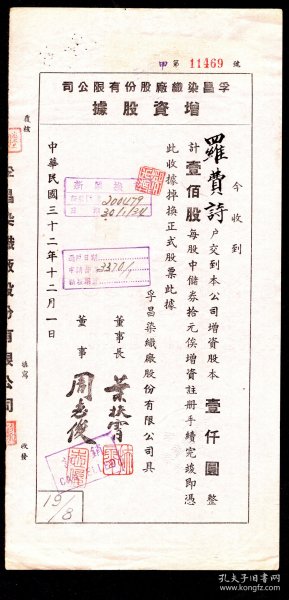 甲 第 11469 號
孚昌染織廠股份有限公司
增資股據
今收到
羅費詩 戶交到本公司增資股本 壹仟圓 整
計 壹佰股 每股中儲券拾元俟增資註冊手續完竣即憑
此收據掉換正式股票此據
孚昌染織廠股份有限公司具
董事長 葉扶霄
董事 周志俊
中華民國三十二年十二月一日
200479
30/1/34
3370/1
註銷
19/8
覆核
孚昌染織廠股份有限公司
填寫
收發
孔夫子旧书网
www.kongfz.com